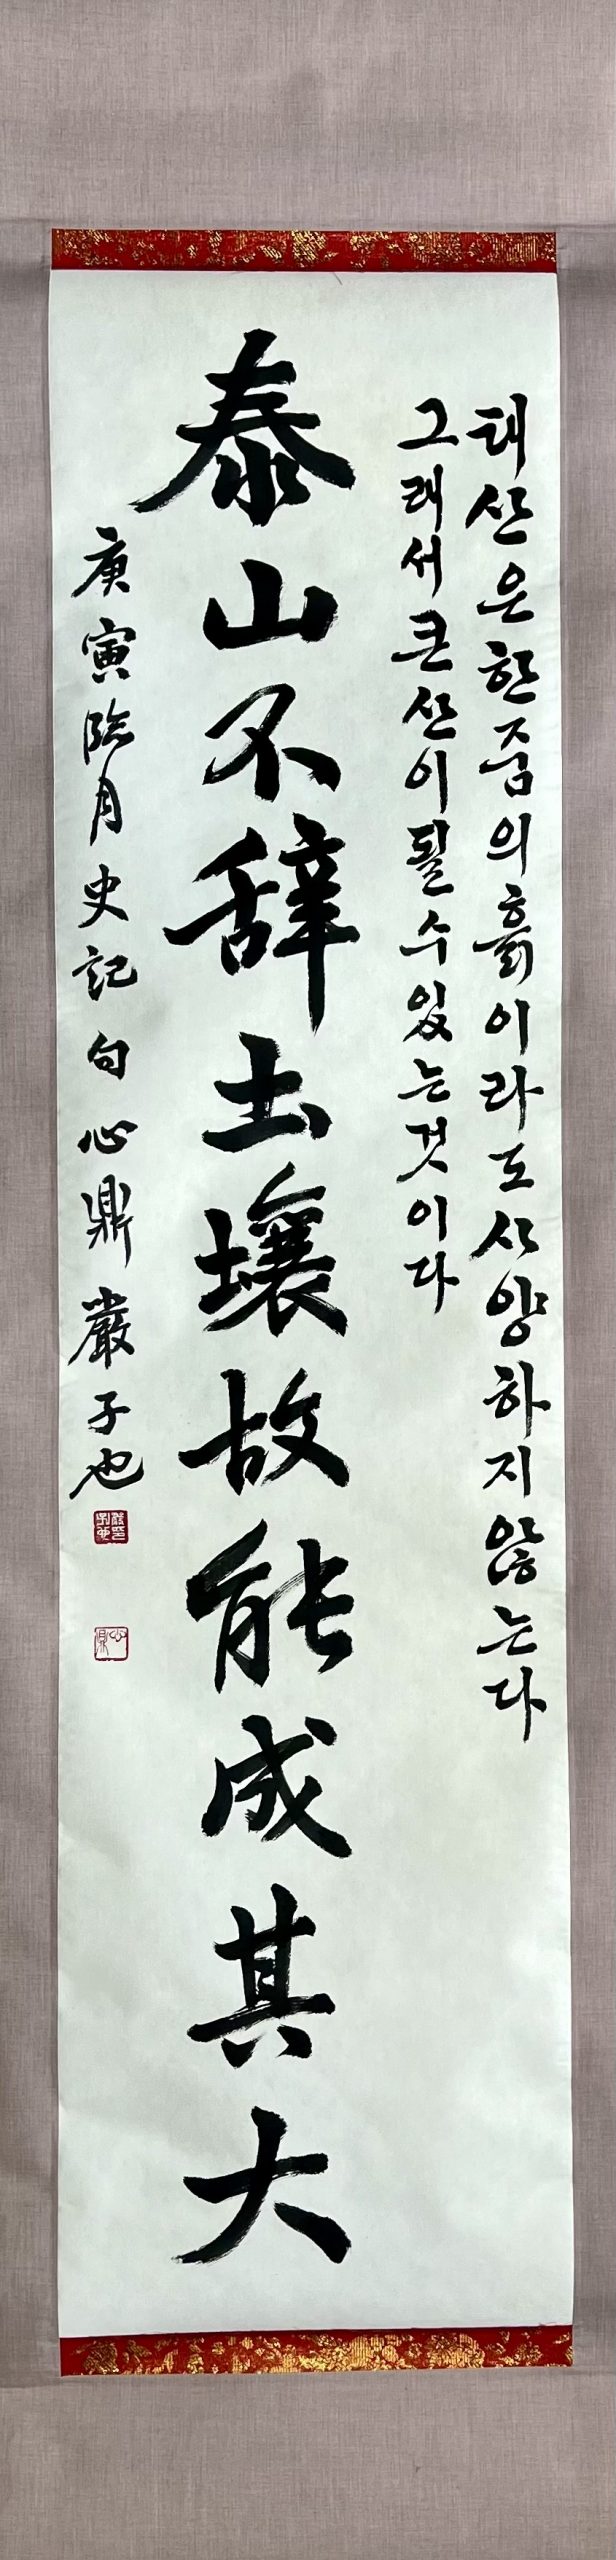 태산은한줌의흙이라도사양하지않는다
그래서큰산이될수있는것이다
泰山不辞土壤故能成其大
庚寅月史記句心鼎嚴子也